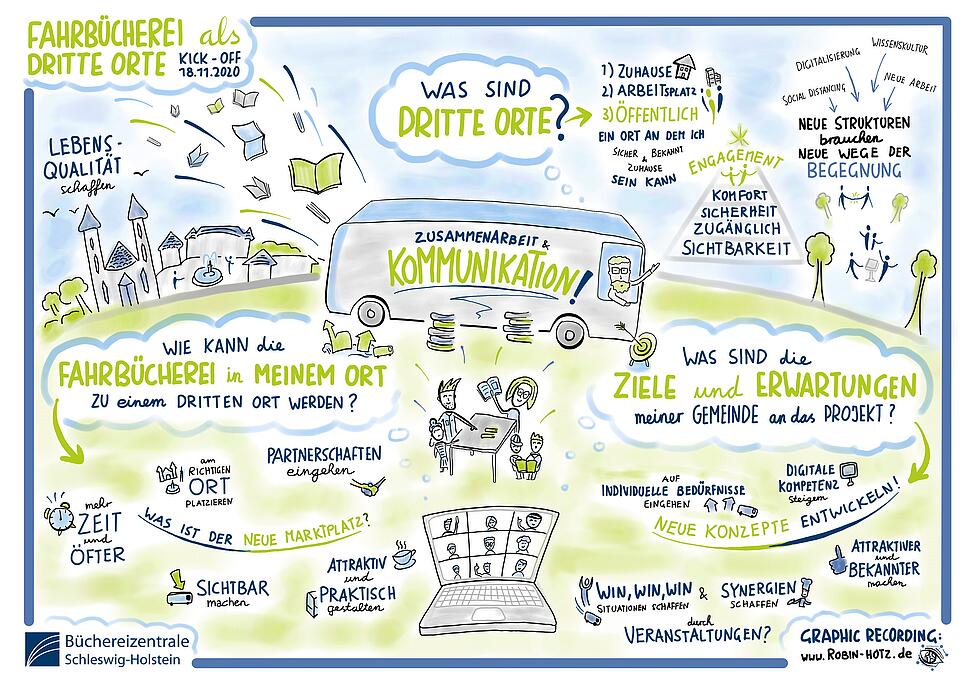 FAHRBÜCHEREI als
DRITTE ORTE
KICK-OFF
18.11.2020
LEBENS-
QUALITÄT
schaffen
WAS SIND
DRITTE ORTE?
1) ZUHAUSE
2) ARBEITSPLATZ
3) ÖFFENTLICH
EIN ORT AN DEM ICH
SICHER & BEKANNT
ZUHAUSE
SEIN KANN
ENGAGEMENT
KOMFORT
SICHERHEIT
ZUGÄNGLICH
SICHTBARKEIT
DIGITALISIERUNG
WISSENSKULTUR
SOCIAL DISTANCING
NEUE ARBEIT
NEUE STRUKTUREN
brauchen
NEUE WEGE DER
BEGEGNUNG
ZUSAMMENARBEIT &
KOMMUNIKATION!
WIE KANN die
FAHRBÜCHEREI in MEINEM ORT
ZU einem DRITTEN ORT WERDEN?
am
RICHTIGEN
ORT
PLATZIEREN
PARTNERSCHAFTEN
eingehen
mehr
ZEIT
und
ÖFTER
WAS IST DER NEUE MARKTPLATZ?
SICHTBAR
machen
ATTRAKTIV
und
PRAKTISCH
gestalten
WAS SIND die
ZIELE und ERWARTUNGEN
meiner GEMEINDE an das PROJEKT?
AUF
INDIVIDUELLE BEDÜRFNISSE
EINGEHEN
DIGITALE
KOMPETENZ
steigern
NEUE KONZEPTE ENTWICKELN!
ATTRAKTIVER
und
BEKANNTER
machen
WIN, WIN, WIN &
SITUATIONEN SCHAFFEN
SYNERGIEN
SCHAFFEN
durch
VERANSTALTUNGEN?
Büchereizentrale
Schleswig-Holstein
GRAPHIC RECORDING:
www.ROBIN-HOTZ.de